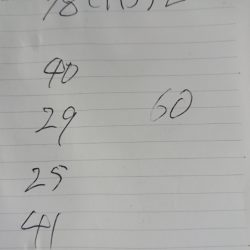 40
29 60
25
41